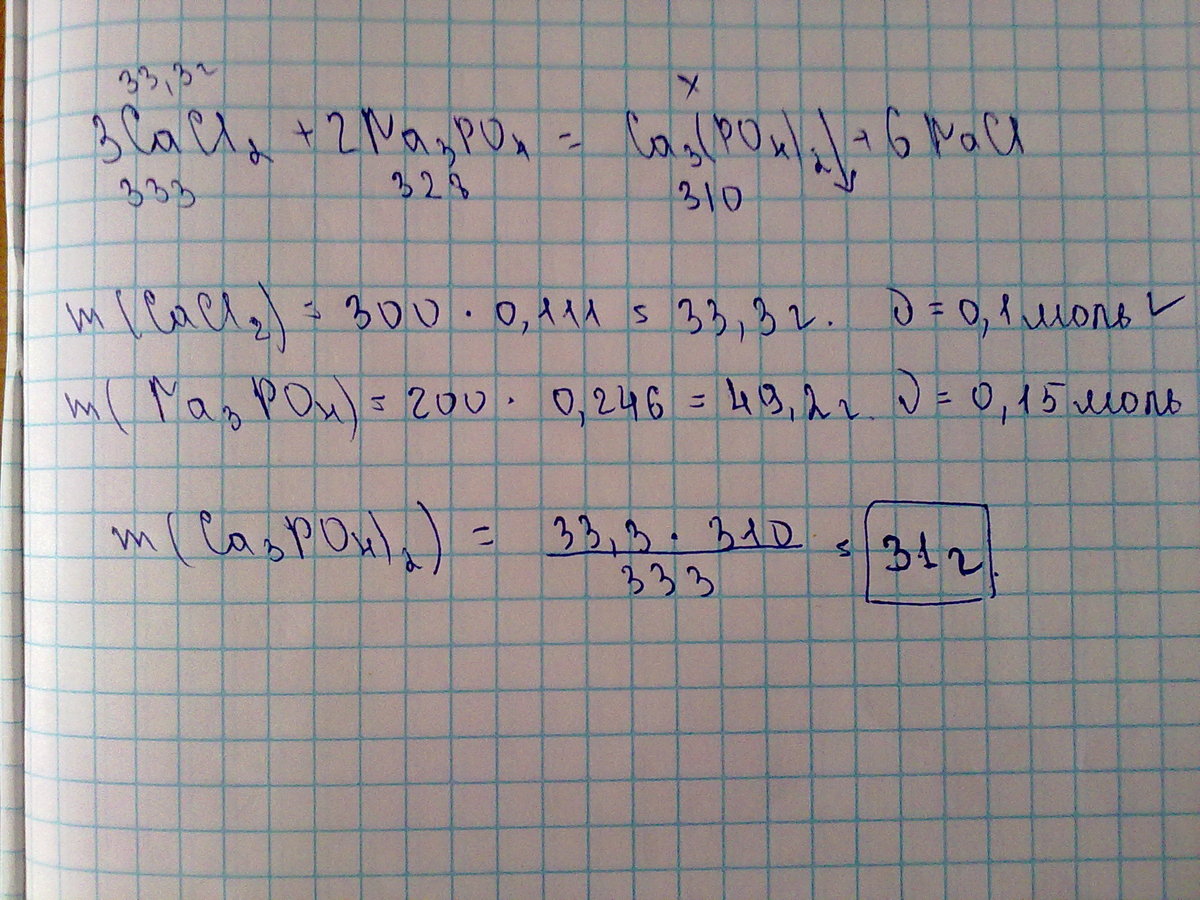 33,3г х
3CaCl₂ + 2Na₃PO₄ = Ca₃(PO₄)₂↓ + 6NaCl
333 328 310
m(CaCl₂) = 300 · 0,111 = 33,3г. ν = 0,1моль ✓
m(Na₃PO₄) = 200 · 0,246 = 49,2г. ν = 0,15моль
m(Ca₃PO₄)₂) = 33,3 · 310 / 333 = 31г.